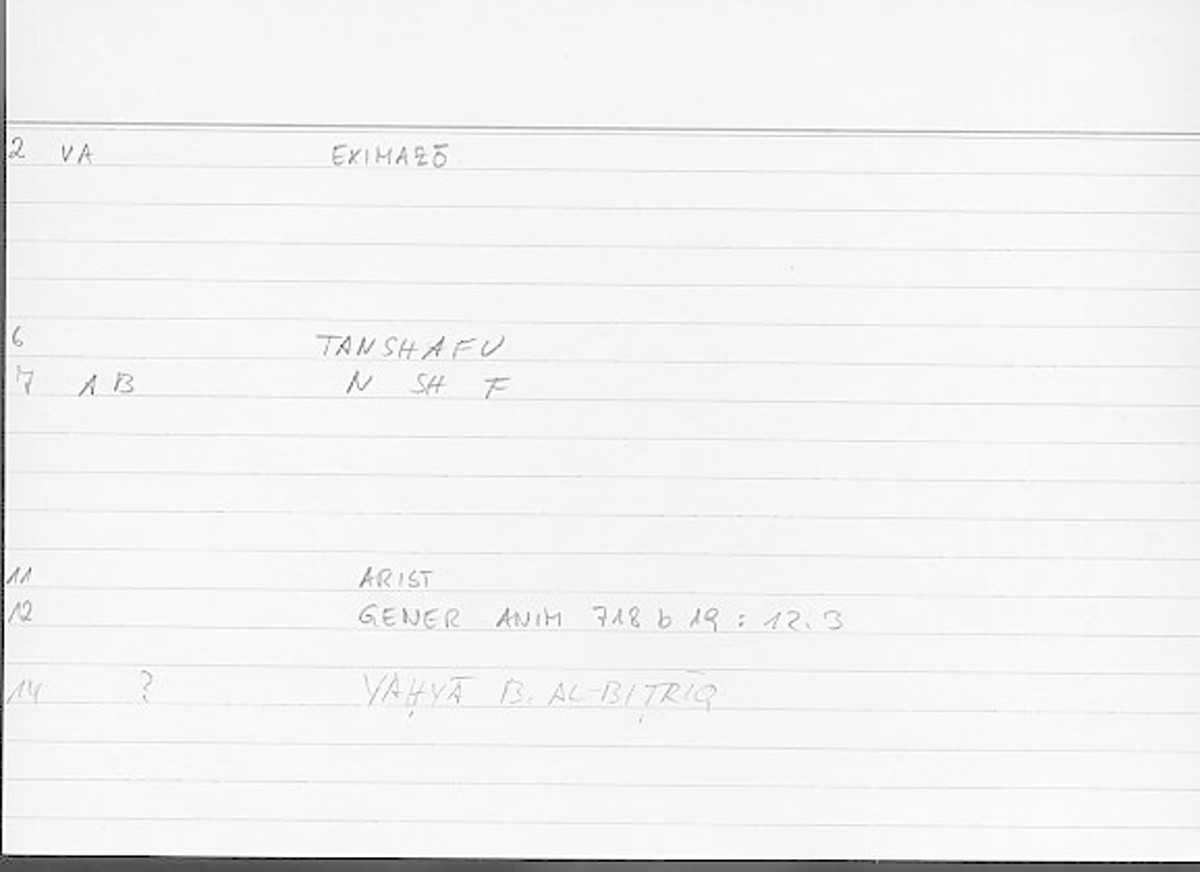 2 VA EKIMAZŌ
6 TANSHAFU
7 A B N SH F
11 ARIST
12 GENER ANIM 718 b 19 : 12.3
14 ? YAḤYĀ B. AL-BIṬRĪQ